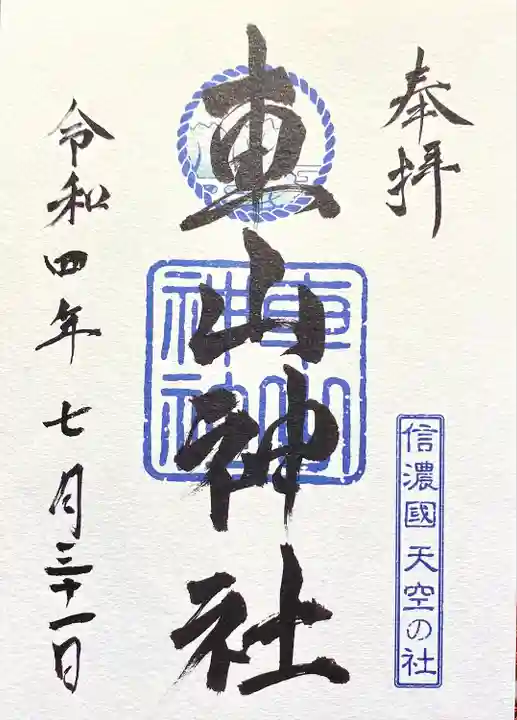 奉拝
車山神社
車山
神社
信濃國 天空の社
令和四年七月三十一日